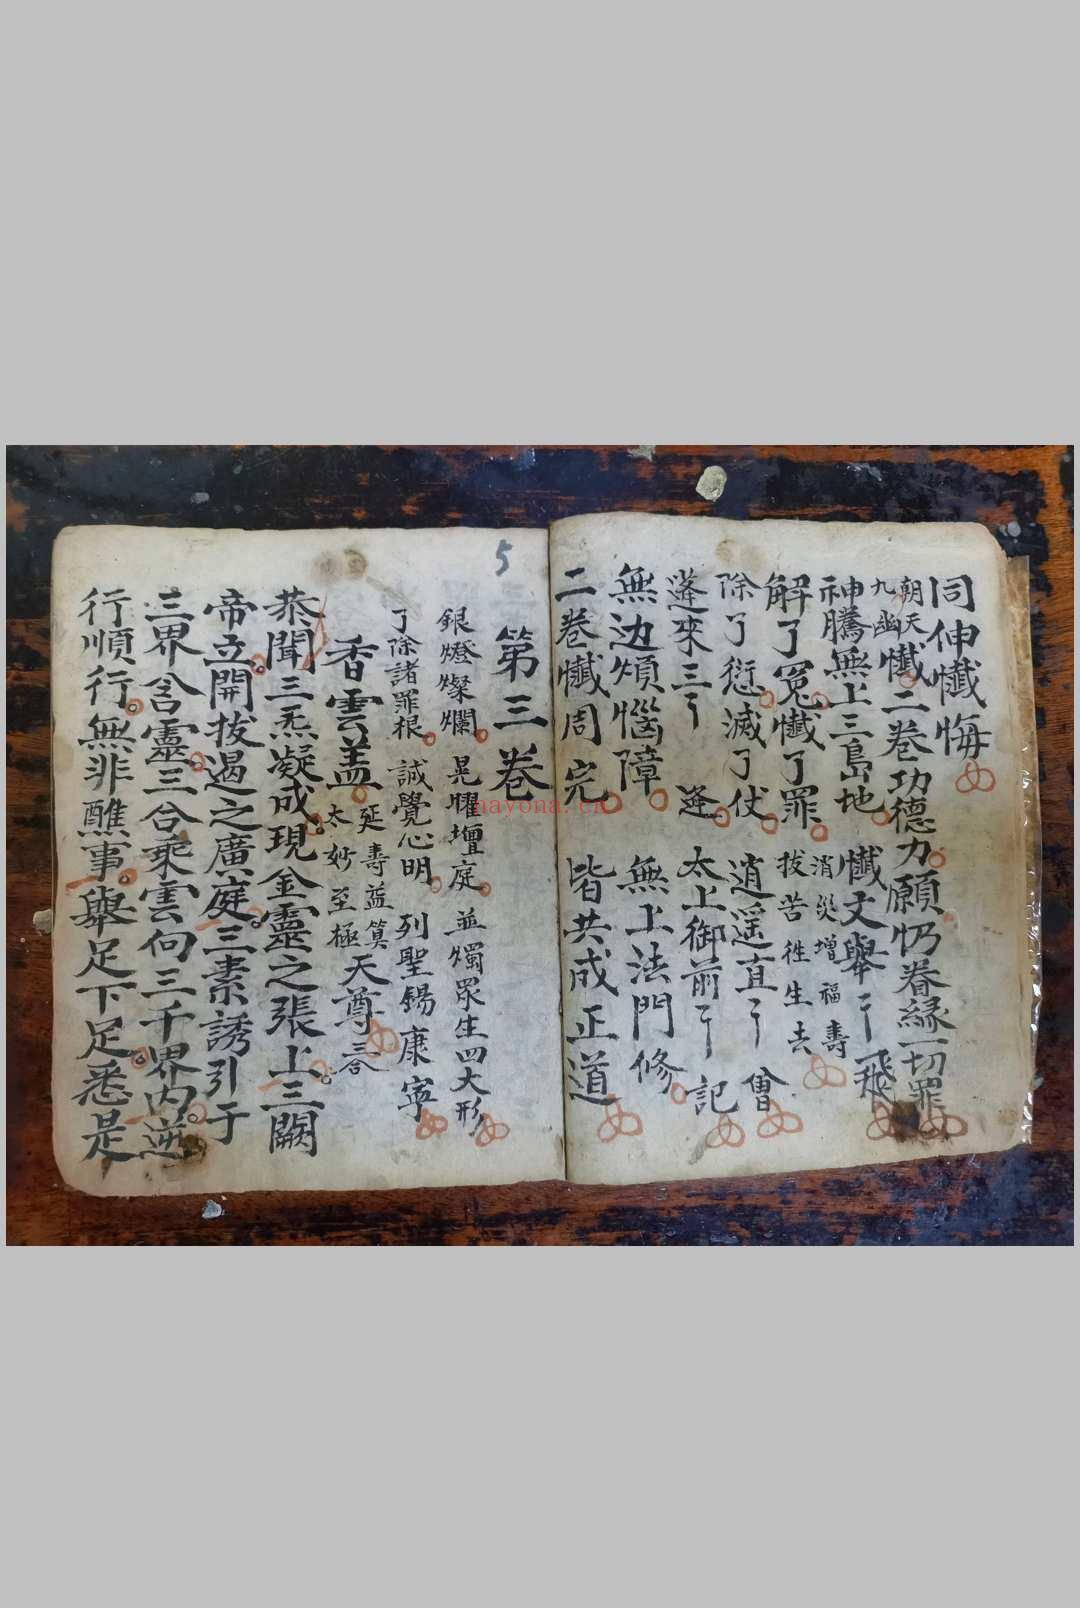 同伸懺悔
朝天
九幽
懺二卷功德力 願怬眷緣一切罪
神騰無上三島地 懺文舉〻飛
解了冤懺了罪 消災增福壽
拔苦徃生去
除了愆滅了 逍遥直〻會
蓬來三〻 逢 太上御前〻記
無边煩惱障 無上法門修
二卷懺周完 皆共成正道
5
第三卷
銀燈燦爛 晃耀壇庭 並燭眾生四大形
了除諸罪根 誠覺心明 列聖錫康寧
香雲盖 延壽益筭
太妙至極
天尊 三合
恭聞三炁凝成現金靈之張上三闕
帝立開拔遏之廣庭三素誘引于
三界含靈三合乘雲向三千界内逆
行順行無非醮事舉足下足悉是
nayona.cn